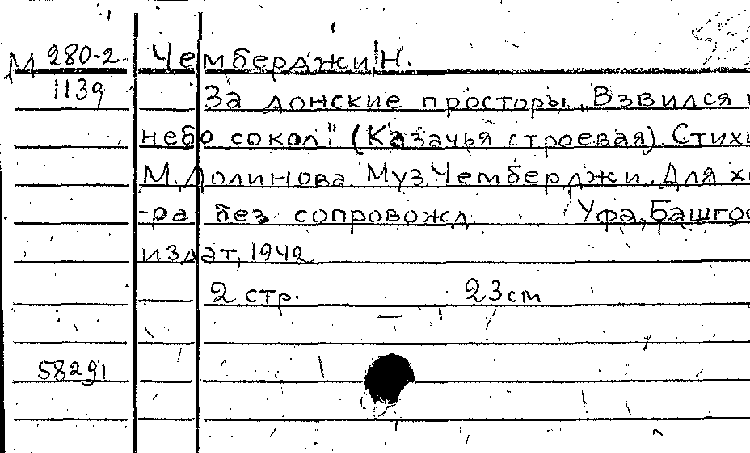 М 280-2 Чемберджи Н.
1139 За донские просторы. „Взвился
небо сокол" (Казачья строевая). Стихи
М. Долинова. Муз. Чемберджи. Для хо
-ра без сопровожд. Уфа, Башгос
издат, 1942
2 стр. 23 cm
58291